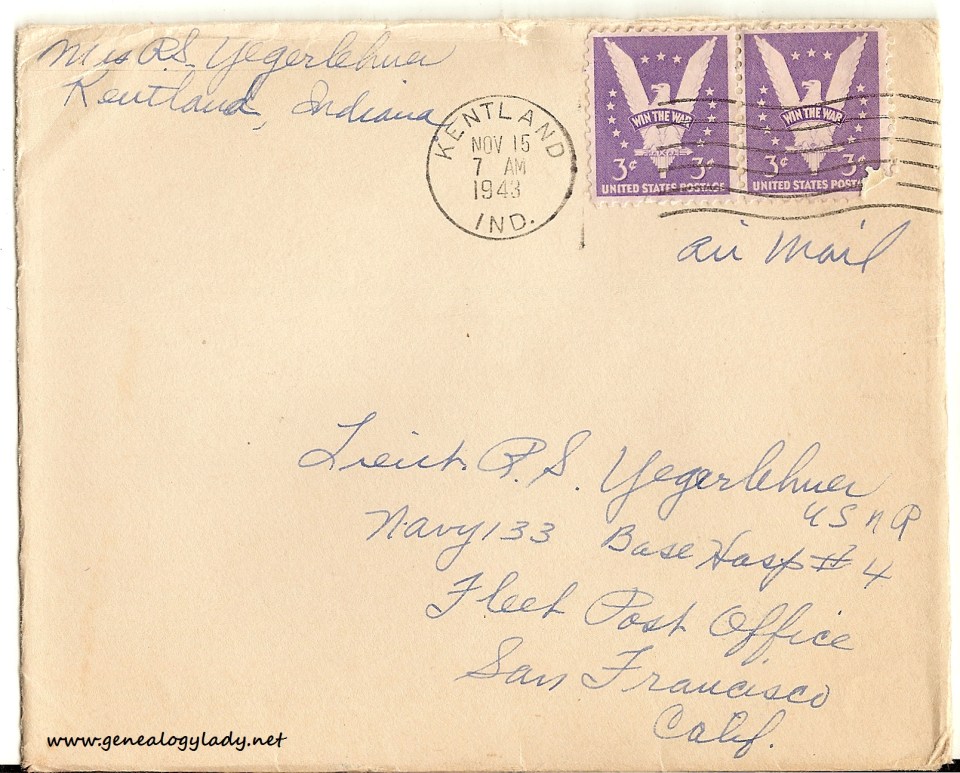 Mrs R.S. Yegerlehner
Kentland, Indiana
KENTLAND
NOV 15
7 AM
1943
IND.
WIN THE WAR
3¢ 3¢
UNITED STATES POSTAGE
WIN THE WAR
3¢ 3¢
UNITED STATES POSTA
Air Mail
Lieut. R.S. Yegerlehner
USNR
Navy 133 Base Hosp # 4
Fleet Post Office
San Francisco
Calif.
www.genealogylady.net